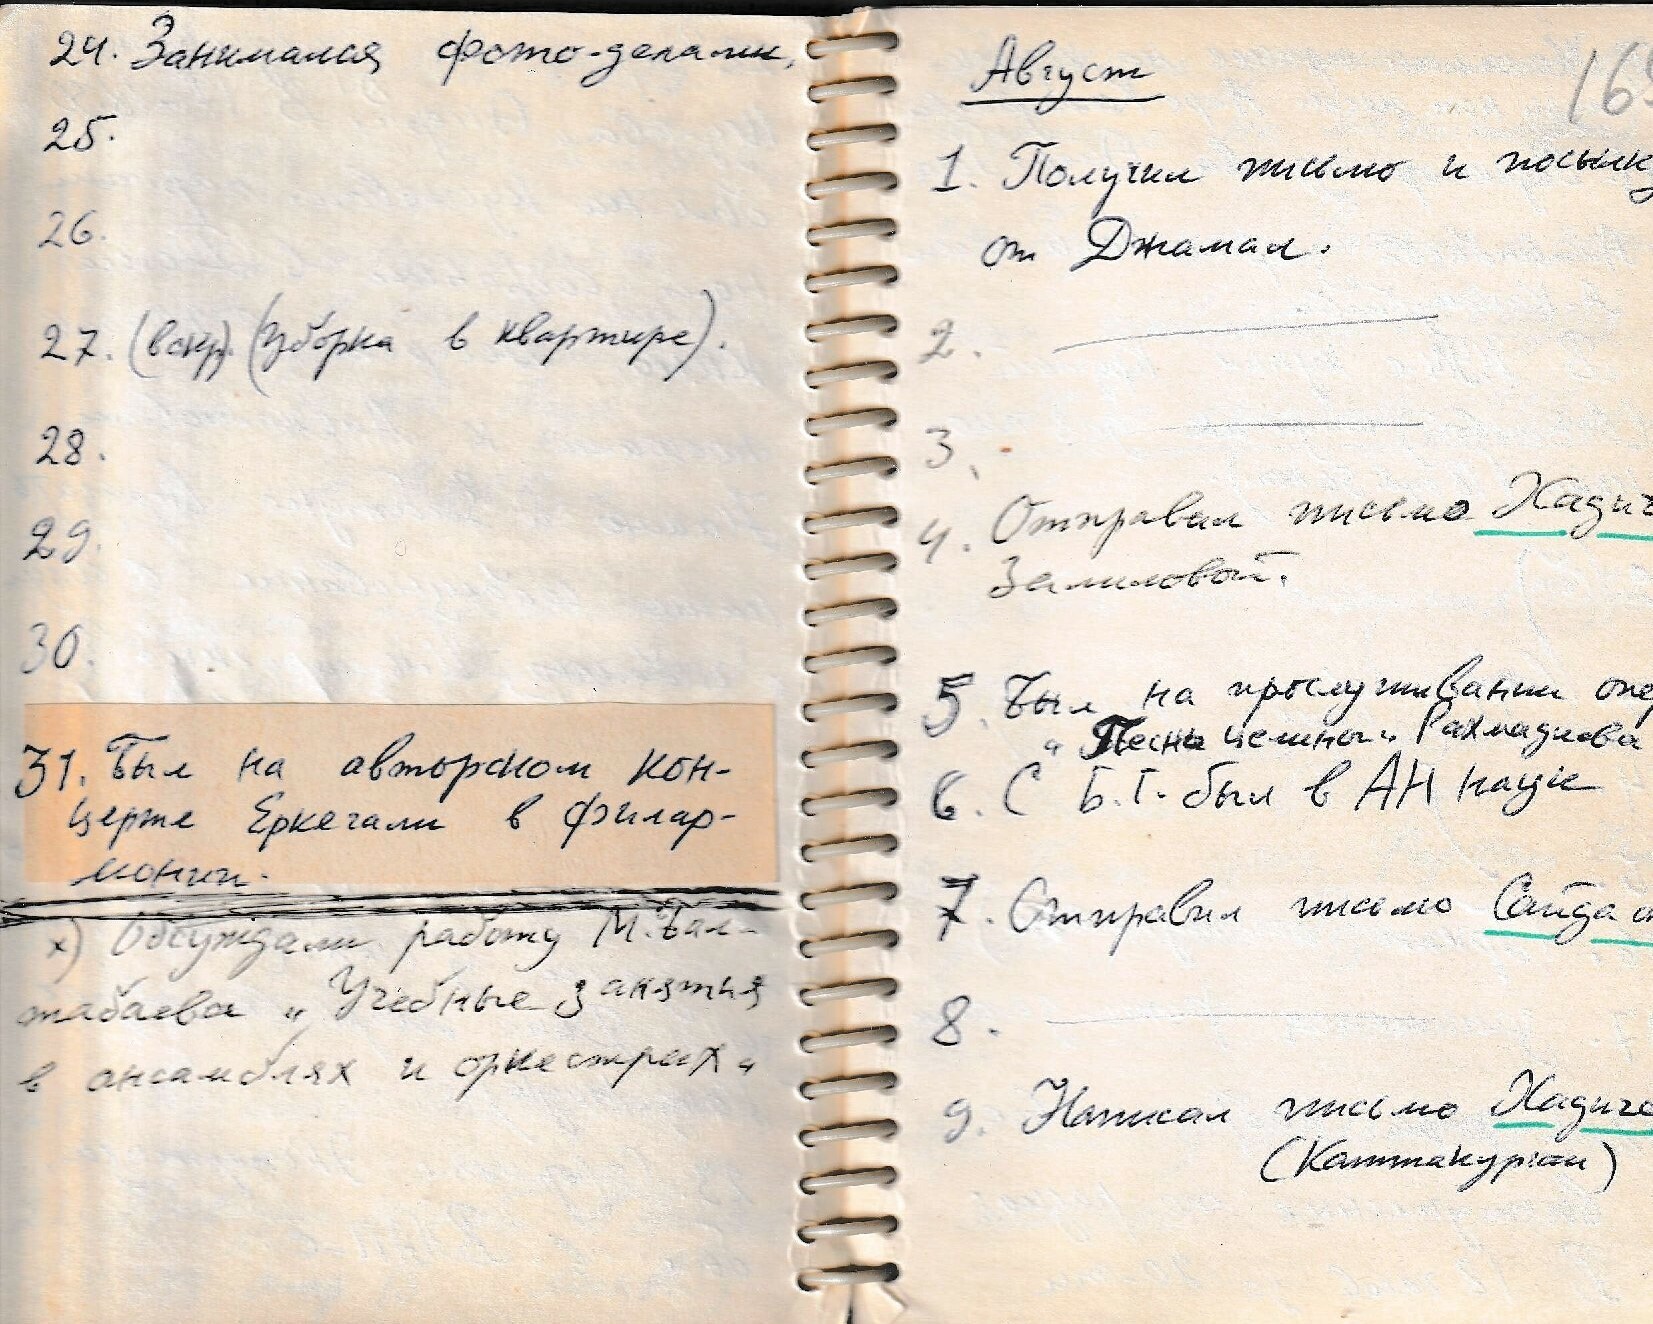 24. Занимался фото-делами,
25.
26.
27. (воскр). (уборка в квартире).
28.
29.
30.
31. Был на авторском кон-
церте Еркегали в филар-
монии.
х) Обсуждали работу М. Бал-
табаева „Учебные занятия
в ансамблях и оркестрах"
Август
1. Получил письмо и посылк
от Джамал.
2.
3.
4. Отправил письмо Хадич
Замиловой.
5. Был на прослушивании опе
„Песнь целины" Рахмадиева
6. С Б.Г. был в АН наук
7. Отправил письмо
8.
9. Написал письмо Хадиче
(Каттакурган)